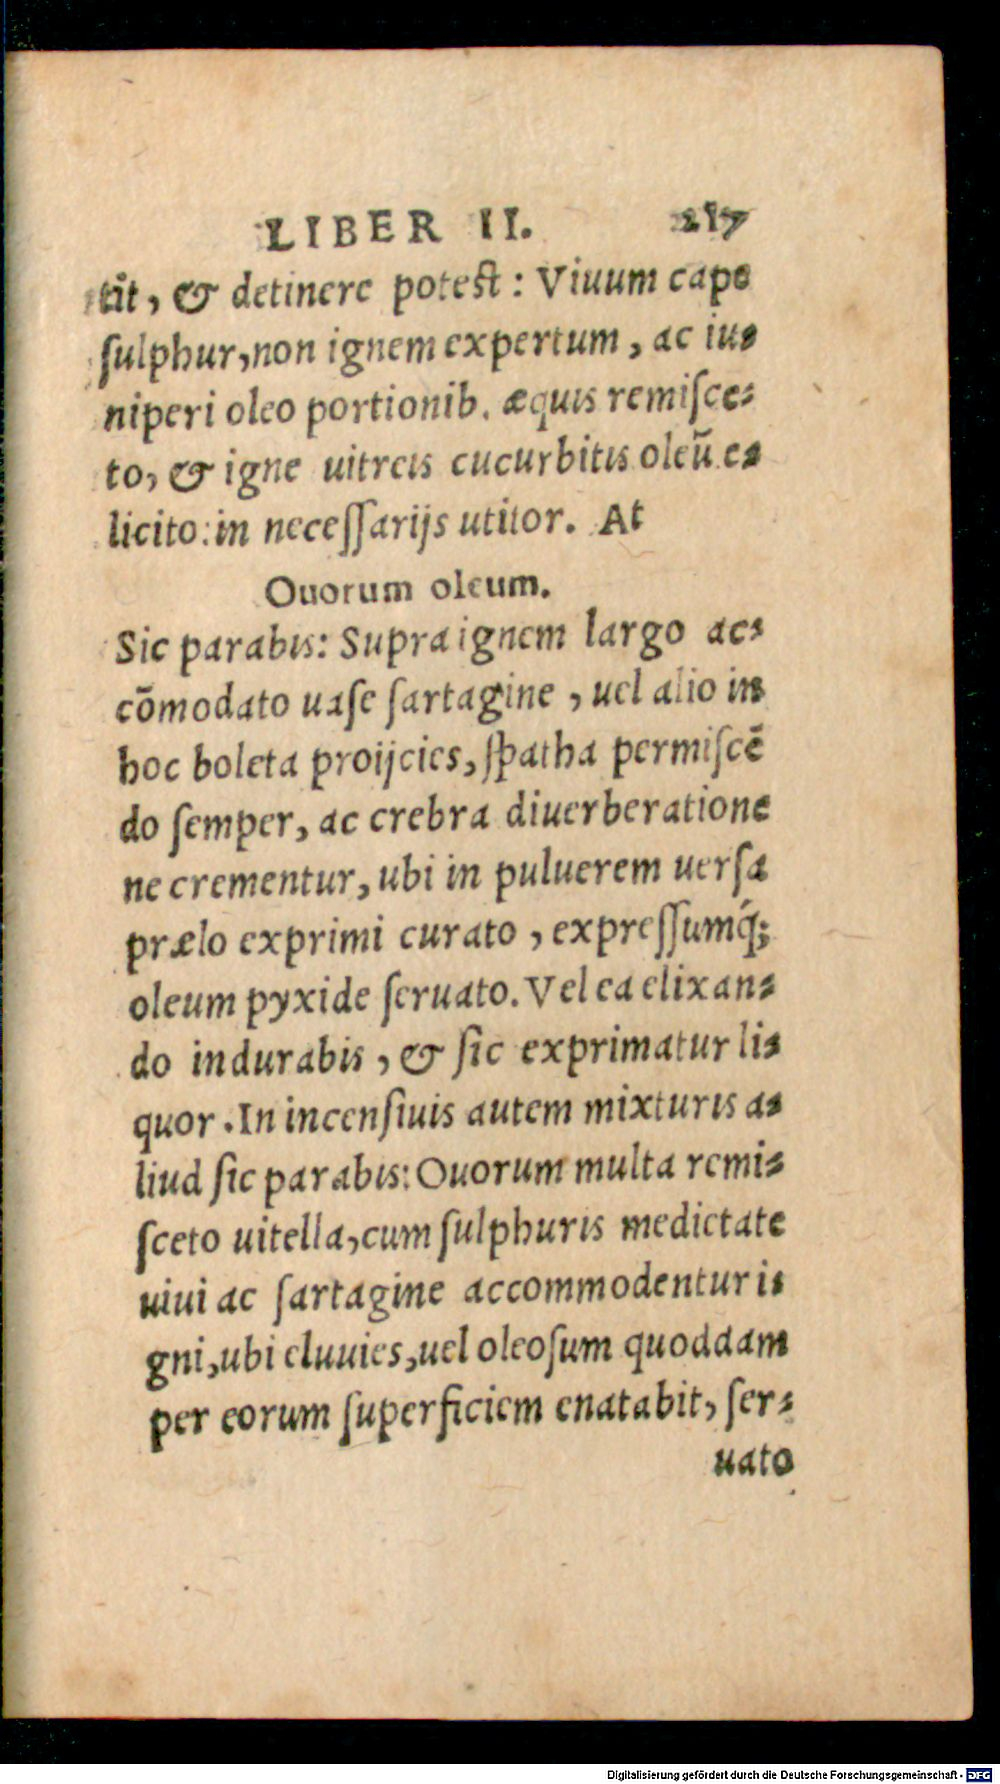 LIBER II. 217
tit, & detinere potest: Viuum cape
ſulphur, non ignem expertum, ac iu⸗
niperi oleo portionib. æquis remiſce⸗
to, & igne uitreis cucurbitis oleū e⸗
licito: in neceſſarijs utitor. At
Ouorum oleum.
Sic parabis: Supra ignem largo ac⸗
cōmodato uaſe ſartagine, uel alio in
hoc boleta proijcies, ſpatha permiſcē
do ſemper, ac crebra diuerberatione
ne crementur, ubi in puluerem uerſa
prælo exprimi curato, expreſſumq́;
oleum pyxide ſeruato. Vel ea elixan⸗
do indurabis, & ſic exprimatur li⸗
quor. In incenſiuis autem mixturis a⸗
liud ſic parabis: Ouorum multa remi⸗
ſceto uitella, cum ſulphuris medietate
uiui ac ſartagine accommodentur i⸗
gni, ubi eluuies, uel oleoſum quoddam
per eorum superficiem enatabit, ſer⸗
uato
Digitalisierung gefördert durch die Deutsche Forschungsgemeinschaft - DFG